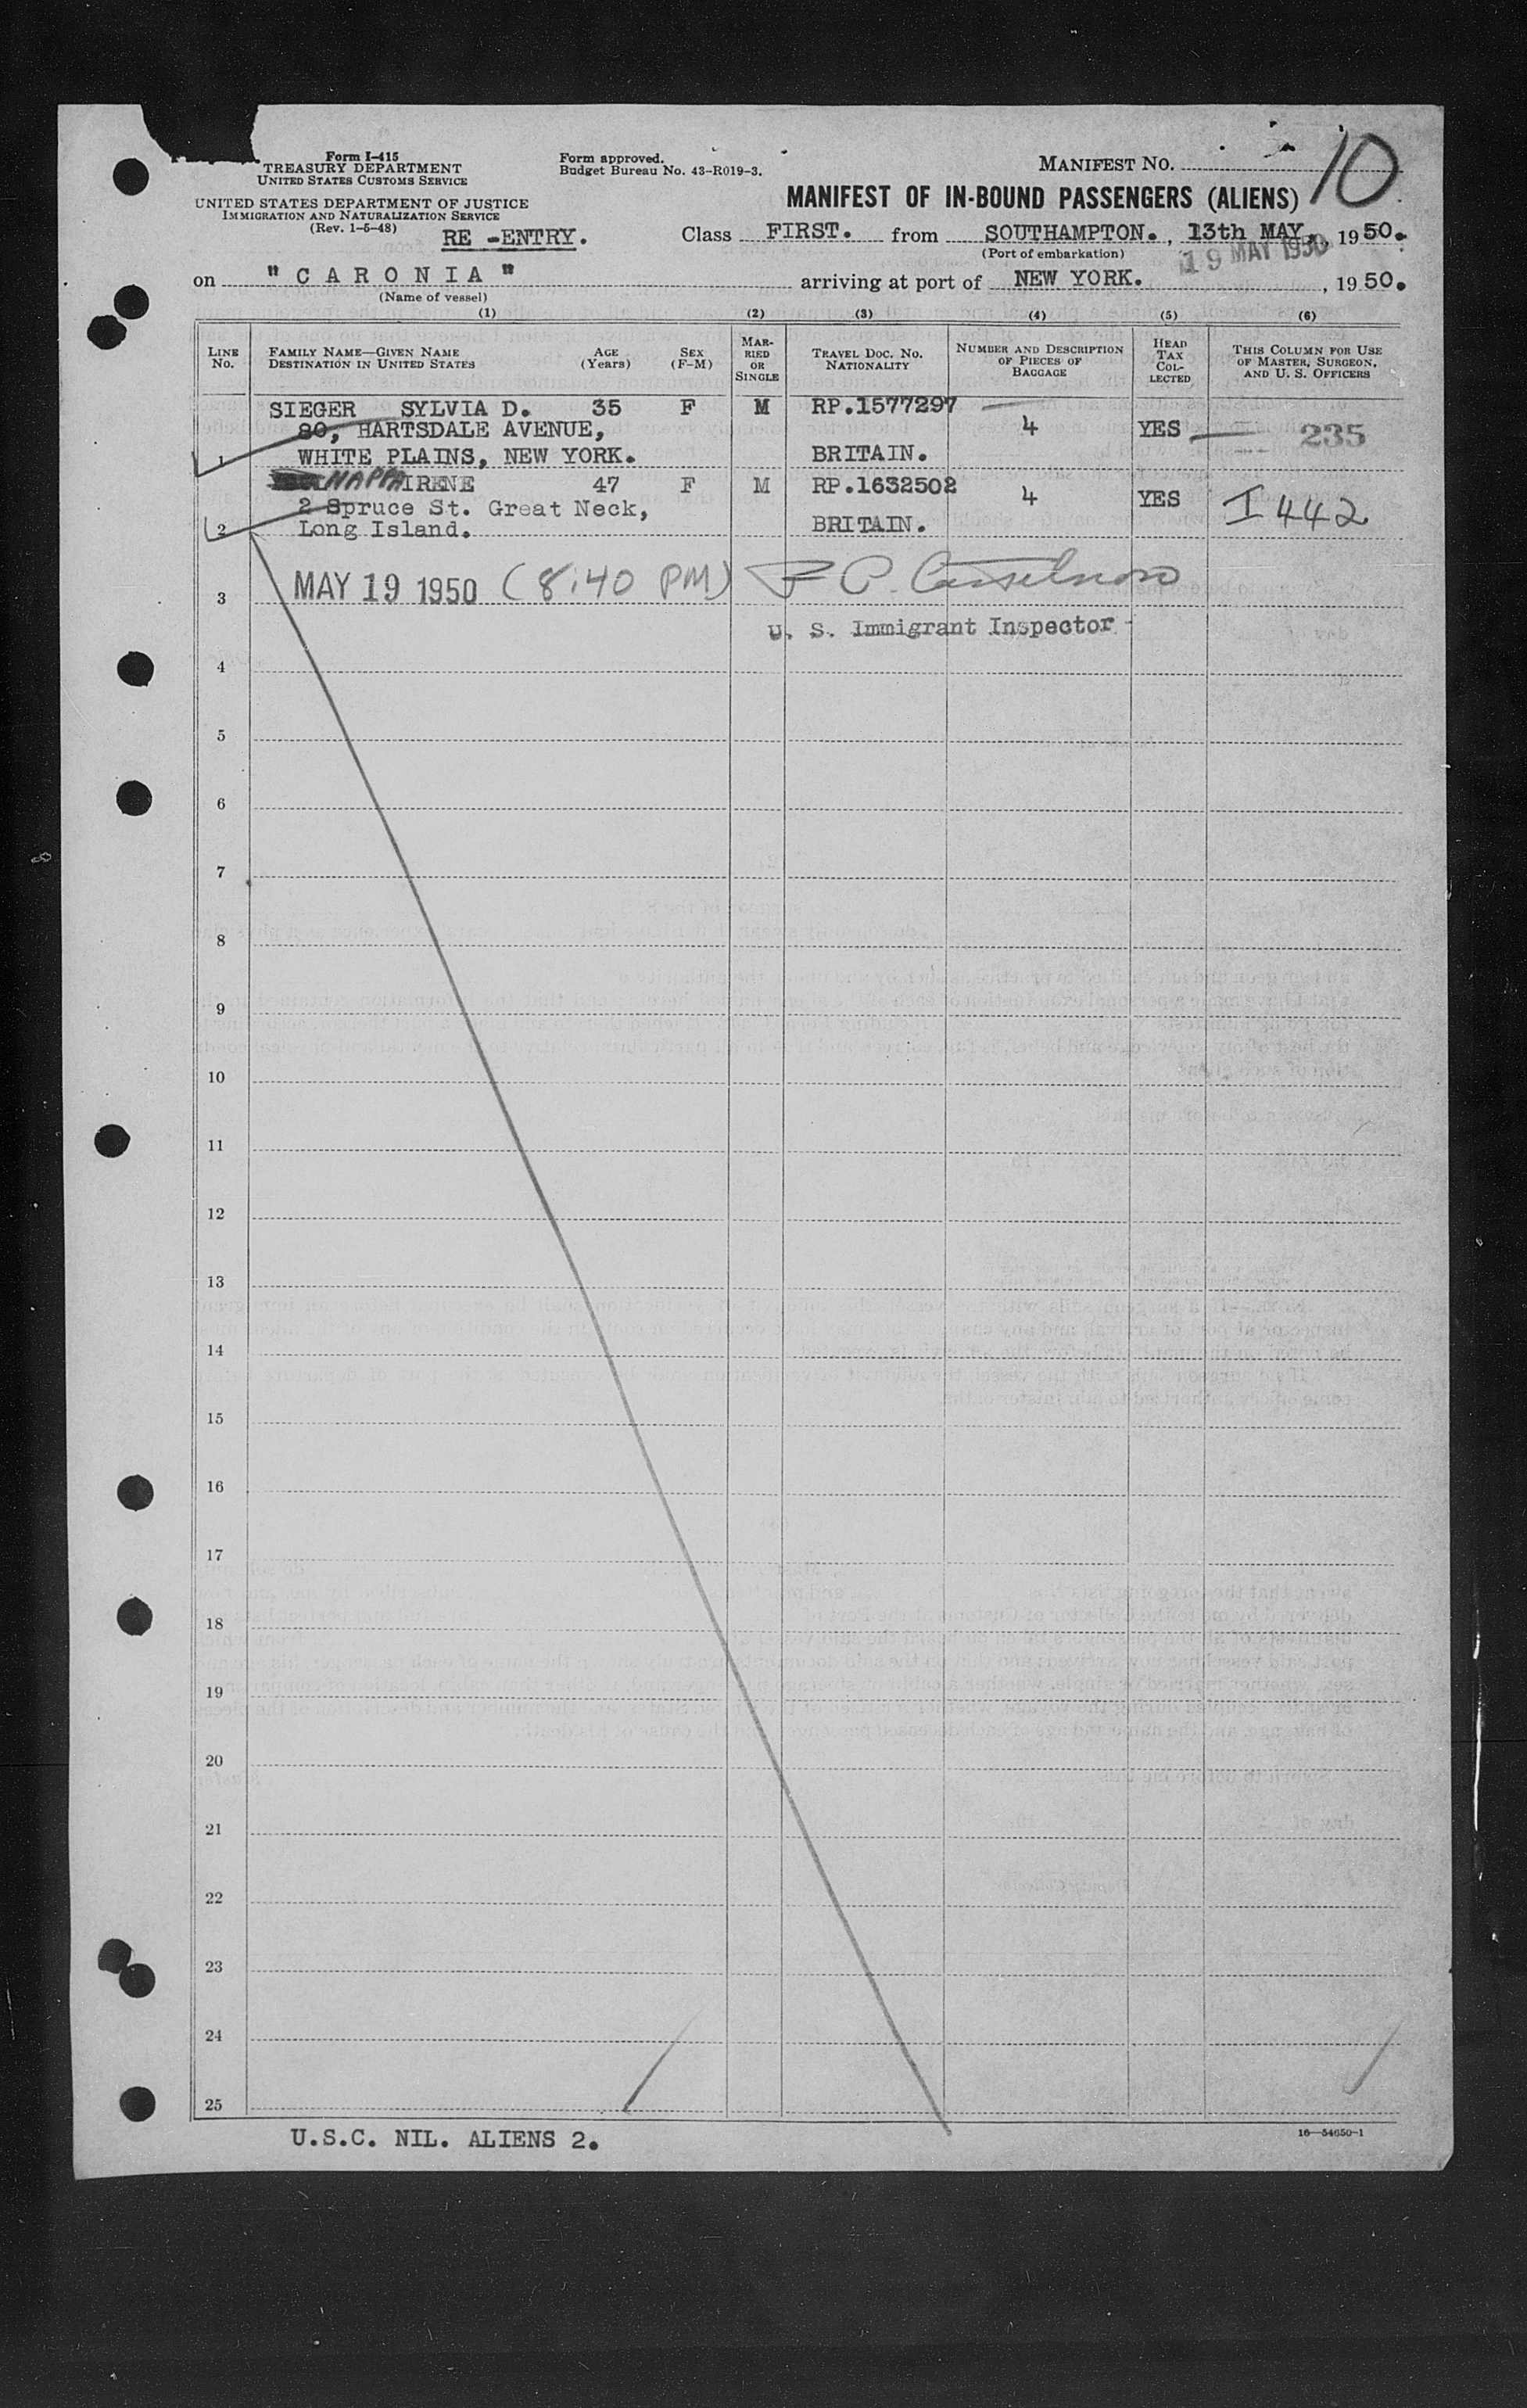 Form I-415
TREASURY DEPARTMENT
UNITED STATES CUSTOMS SERVICE
UNITED STATES DEPARTMENT OF JUSTICE
IMMIGRATION AND NATURALIZATION SERVICE
(Rev. 1-5-48)
Form approved.
Budget Bureau No. 43-R019-3.
MANIFEST NO. 10
MANIFEST OF IN-BOUND PASSENGERS (ALIENS)
RE -ENTRY. Class FIRST. from SOUTHAMPTON., 13th MAY., 1950.
(Port of embarkation)
19 MAY 1950
on "CARONIA" arriving at port of NEW YORK. , 1950.
(Name of vessel)
(1) (2) (3) (4) (5) (6)
LINE NO. FAMILY NAME—GIVEN NAME DESTINATION IN UNITED STATES AGE (Years) SEX (F-M) MARRIED OR SINGLE TRAVEL DOC. NO. NATIONALITY NUMBER AND DESCRIPTION OF PIECES OF BAGGAGE HEAD TAX COLLECTED THIS COLUMN FOR USE OF MASTER, SURGEON, AND U. S. OFFICERS
SIEGER SYLVIA D. 35 F M RP.1577297
80, HARTSDALE AVENUE, 4 YES 235
1 WHITE PLAINS, NEW YORK. BRITAIN.
IRENE 47 F M RP.1632502
2 Spruce St. Great Neck, 4 YES I 442
2 Long Island. BRITAIN.
3 MAY 19 1950 (8:40 PM)
U. S. Immigrant Inspector
4
5
6
7
8
9
10
11
12
13
14
15
16
17
18
19
20
21
22
23
24
25
U.S.C. NIL. ALIENS 2.
16—54650-1